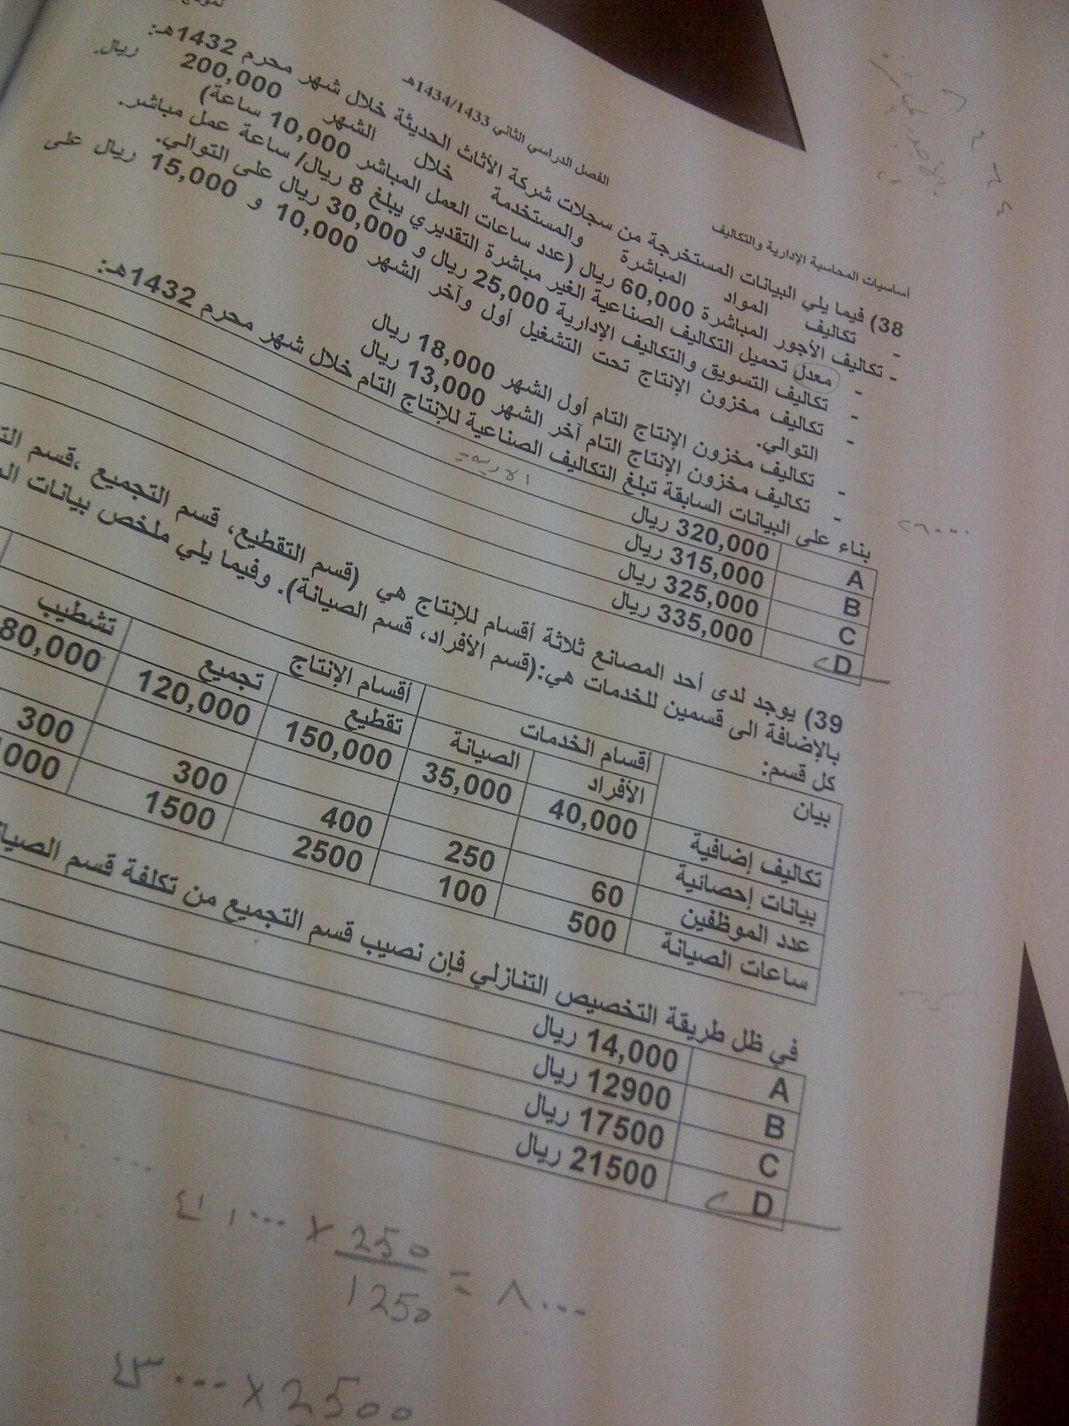 الفصل الدراسي الثاني 1434/1433هـ
أساسيات المحاسبة الإدارية والتكاليف
38) فيما يلي البيانات المستخرجة من سجلات شركة الأثاث الحديثة خلال شهر محرم 1432هـ:
- تكاليف المواد المباشرة والمستخدمة خلال الشهر 200,000 ريال.
- تكاليف الأجور المباشرة 60,000 ريال (عدد ساعات العمل المباشر 10,000 ساعة)
- معدل تحميل التكاليف الصناعية الغير مباشرة التقديري يبلغ 8 ريال/ ساعة عمل مباشر.
- تكاليف التسويق والتكاليف الإدارية 25,000 ريال و 30,000 ريال على التوالي.
- تكاليف مخزون الإنتاج تحت التشغيل أول وآخر الشهر 10,000 و 15,000 ريال على
التوالي.
- تكاليف مخزون الإنتاج التام أول الشهر 18,000 ريال
- تكاليف مخزون الإنتاج التام آخر الشهر 13,000 ريال
بناء على البيانات السابقة تبلغ التكاليف الصناعية للإنتاج التام خلال شهر محرم 1432هـ:
A 320,000 ريال
B 315,000 ريال
C 325,000 ريال
D 335,000 ريال
39) يوجد لدى أحد المصانع ثلاثة أقسام للإنتاج هي (قسم التقطيع، قسم التجميع ،قسم
بالإضافة الى قسمين للخدمات هي:(قسم الأفراد، قسم الصيانة). وفيما يلي ملخص بيانات
كل قسم:
بيان أقسام الخدمات أقسام الإنتاج
الأفراد الصيانة تقطيع تجميع تشطيب
تكاليف إضافية 40,000 35,000 150,000 120,000 80,000
بيانات إحصائية
عدد الموظفين 60 250 400 300 300
ساعات الصيانة 500 100 2500 1500 1000
في ظل طريقة التخصيص التنازلي فإن نصيب قسم التجميع من تكلفة قسم
A 14,000 ريال
B 12900 ريال
C 17500 ريال
D 21500 ريال
× 250 / 1250 = ٨٠٠٠
٤٣٠٠٠ × 2500